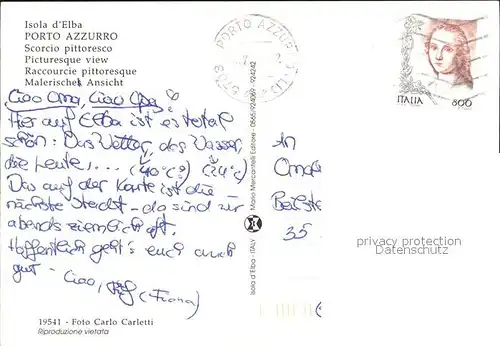 Isola d'Elba
PORTO AZZURRO
Scorcio pittoresco
Picturesque view
Raccourcie pittoresque
Malerisches Ansicht
Ciao Oma, Ciao Opa,
Hier auf Elba ist es total
schön: Das Wetter, das Wasser,
die Leute,... (40°C?) (24°C)
Das auf der Karte ist die
nächste Stadt - da sind wir
abends ziemlich oft.
Hoffentlich geht's euch auch
gut - Ciao,
19541 - Foto Carlo Carletti
Riproduzione vietata
Isola d'Elba - ITALY
Mario Mercantelli Editore - 0565-924069 - 924242
PORTO AZZURRO
57036
ITALIA 800
An
Oma
35
privacy protection
Datenschutz